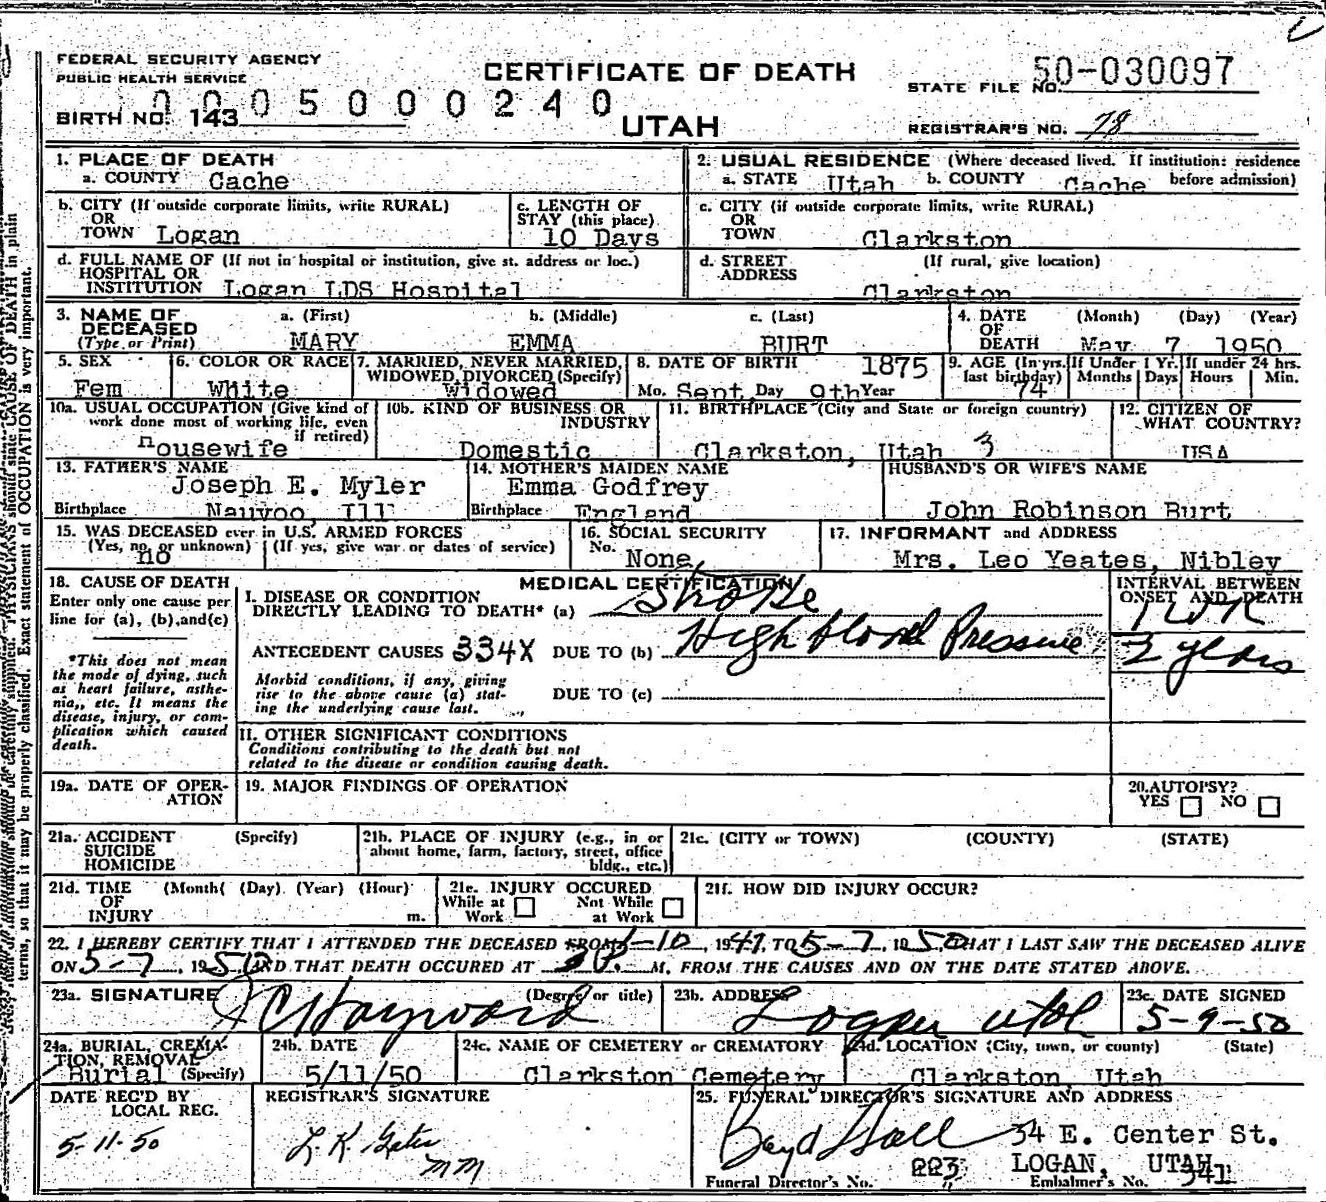 FEDERAL SECURITY AGENCY
PUBLIC HEALTH SERVICE
CERTIFICATE OF DEATH
STATE FILE NO. 50-030097
0005000240
BIRTH NO. 143
UTAH
REGISTRAR'S NO. 78
1. PLACE OF DEATH
a. COUNTY Cache
2. USUAL RESIDENCE (Where deceased lived. If institution: residence before admission)
a. STATE Utah b. COUNTY Cache
b. CITY (If outside corporate limits, write RURAL)
OR
TOWN Logan
c. LENGTH OF
STAY (this place)
10 Days
c. CITY (if outside corporate limits, write RURAL)
OR
TOWN Clarkston
d. FULL NAME OF (If not in hospital or institution, give st. address or loc.)
HOSPITAL OR
INSTITUTION Logan LDS Hospital
d. STREET (If rural, give location)
ADDRESS
Clarkston
3. NAME OF DECEASED
(Type or Print)
a. (First) b. (Middle) c. (Last)
MARY EMMA BURT
4. DATE OF DEATH (Month) (Day) (Year)
May 7 1950
5. SEX
Fem
6. COLOR OR RACE
White
7. MARRIED, NEVER MARRIED,
WIDOWED, DIVORCED (Specify)
Widowed
8. DATE OF BIRTH 1875
Mo. Sept Day 9th Year
9. AGE (In yrs. last birthday) 74
If Under 1 Yr. Months Days
If under 24 hrs. Hours Min.
10a. USUAL OCCUPATION (Give kind of
work done most of working life, even
if retired)
Housewife
10b. KIND OF BUSINESS OR
INDUSTRY
Domestic
11. BIRTHPLACE (City and State or foreign country)
Clarkston, Utah 3
12. CITIZEN OF
WHAT COUNTRY?
USA
13. FATHER'S NAME
Joseph E. Myler
Birthplace Nauvoo, Ill
14. MOTHER'S MAIDEN NAME
Emma Godfrey
Birthplace England
HUSBAND'S OR WIFE'S NAME
John Robinson Burt
15. WAS DECEASED ever in U.S. ARMED FORCES
(Yes, no, or unknown) (If yes, give war or dates of service)
no
16. SOCIAL SECURITY
No. None
17. INFORMANT and ADDRESS
Mrs. Leo Yeates, Nibley
18. CAUSE OF DEATH
Enter only one cause per
line for (a), (b), and (c)
*This does not mean
the mode of dying, such
as heart failure, asthe-
nia,, etc. It means the
disease, injury, or com-
plication which caused
death.
MEDICAL CERTIFICATION
I. DISEASE OR CONDITION
DIRECTLY LEADING TO DEATH* (a) Stroke
ANTECEDENT CAUSES 334X DUE TO (b) High blood Pressure
Morbid conditions, if any, giving
rise to the above cause (a) stat-
ing the underlying cause last.
DUE TO (c)
INTERVAL BETWEEN
ONSET AND DEATH
1 WK
2 years
II. OTHER SIGNIFICANT CONDITIONS
Conditions contributing to the death but not
related to the disease or condition causing death.
19a. DATE OF OPER-
ATION
19. MAJOR FINDINGS OF OPERATION
20. AUTOPSY?
YES NO
21a. ACCIDENT (Specify)
SUICIDE
HOMICIDE
21b. PLACE OF INJURY (e.g., in or
about home, farm, factory, street, office
bldg., etc.)
21c. (CITY or TOWN) (COUNTY) (STATE)
21d. TIME (Month( (Day) (Year) (Hour)
OF
INJURY m.
21e. INJURY OCCURED
While at Work Not While at Work
21f. HOW DID INJURY OCCUR?
22. I HEREBY CERTIFY THAT I ATTENDED THE DECEASED FROM -10, 1949, TO 5-7, 1950 THAT I LAST SAW THE DECEASED ALIVE
ON 5-7, 1950 AND THAT DEATH OCCURED AT 3 P. M. FROM THE CAUSES AND ON THE DATE STATED ABOVE.
23a. SIGNATURE (Degree or title)
J C Hayward
23b. ADDRESS
Logan Utah
23c. DATE SIGNED
5-9-50
24a. BURIAL, CREMA-
TION, REMOVAL
Burial (Specify)
24b. DATE
5/11/50
24c. NAME OF CEMETERY or CREMATORY
Clarkston Cemetery
24d. LOCATION (City, town, or county) (State)
Clarkston, Utah
DATE REC'D BY
LOCAL REG.
5-11-50
REGISTRAR'S SIGNATURE
L. K. Gates
MM
25. FUNERAL DIRECTOR'S SIGNATURE AND ADDRESS
Boyd Hall 34 E. Center St.
LOGAN, UTAH
Funeral Director's No. 223 Embalmer's No. 341
terms, so that it may be properly classified. Exact statement of OCCUPATION is very important.